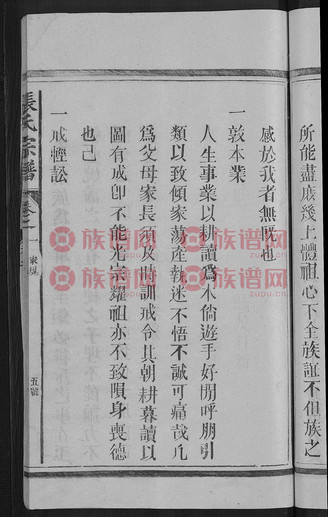 所能盡庶幾上體祖心下全族誼不但族之
感於我者無旣也
一敦本業
人生事業以耕讀爲本倘遊手好閒呼朋引
類以致傾家蕩產執迷不悟不誠可痛哉凡
爲父母家長須及時訓戒令其朝耕暮讀以
圖有成卽不能光宗耀祖亦不致隕身喪德
也已
一戒輕訟
張氏宗譜
卷之一
家規
五號
族譜网
zupu.cn
族譜网
zupu.cn
族譜网
zupu.cn
族譜网
zupu.cn